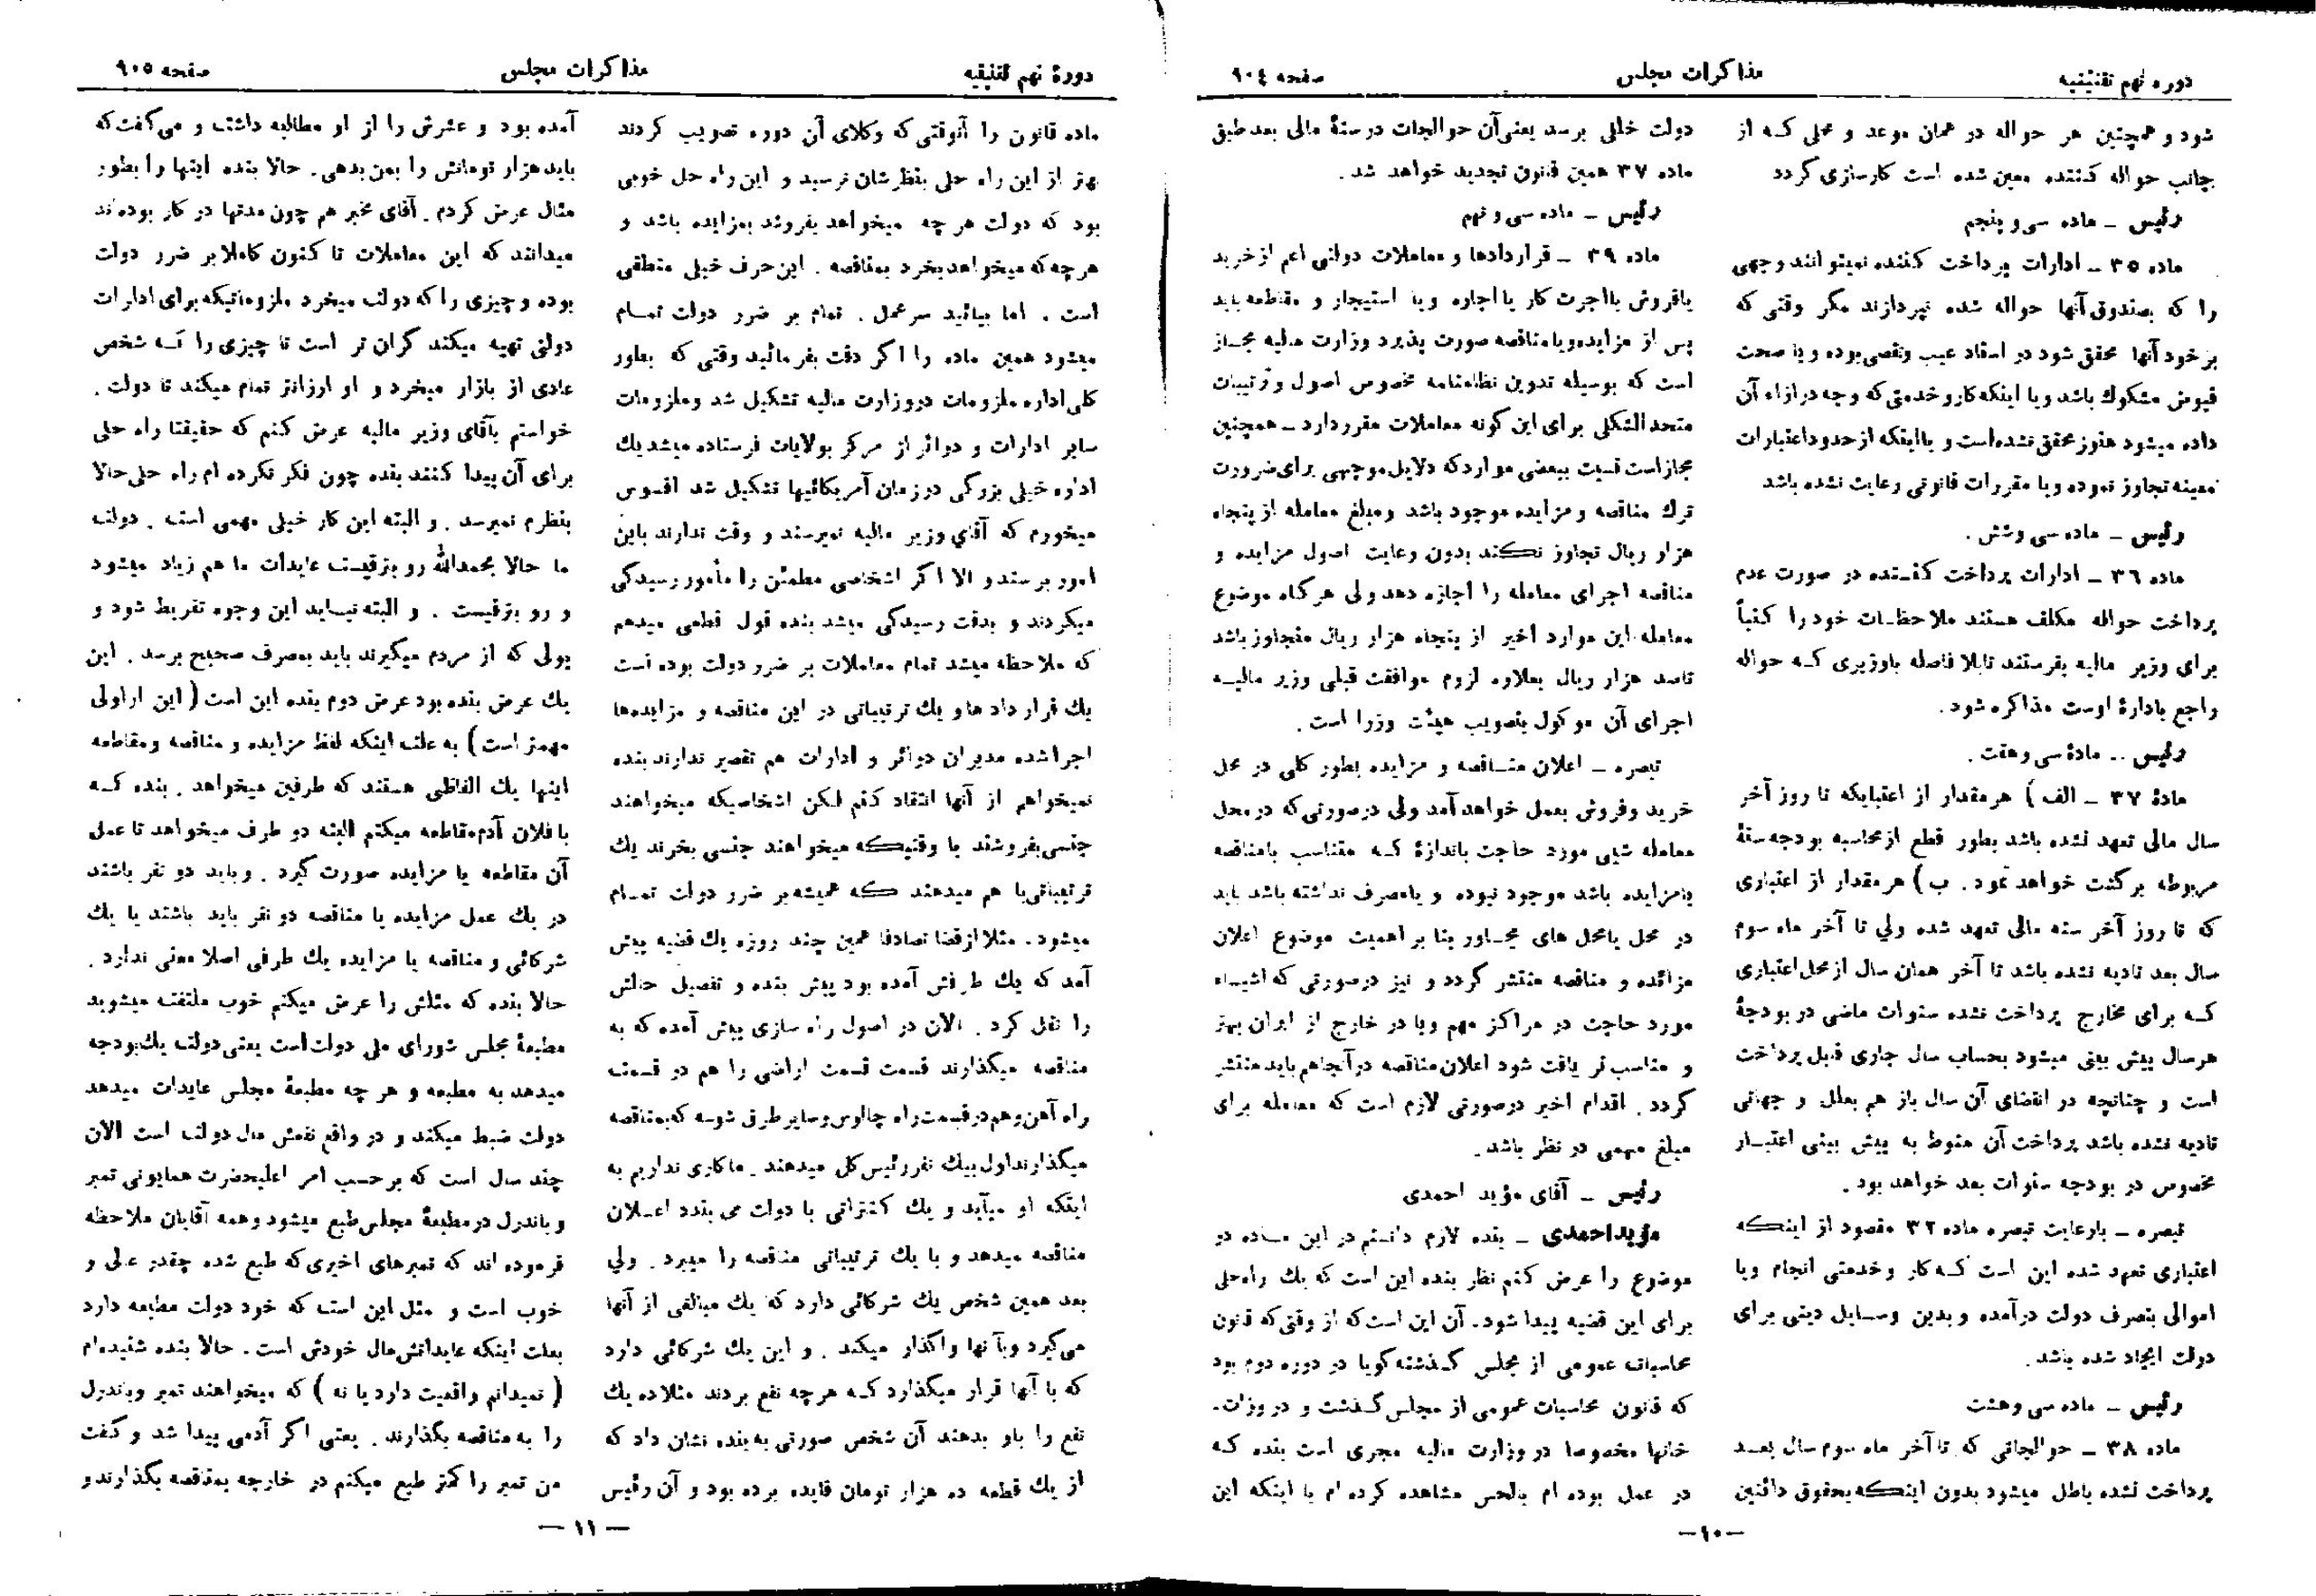 دوره نهم تقنینیه
مذاکرات مجلس
صفحه ۹۰٤
شود و همچنین هر حواله در همان موعد و محلی که از
جانب حواله کننده معین شده است کارسازی گردد
رئیس ـ ماده سی و پنجم
ماده ۳٥ ـ ادارات پرداخت کننده نمیتوانند وجهی
را که بصندوق آنها حواله شده نپردازند مگر وقتی که
بر خود آنها محقق شود در اسناد عیب و نقصی بوده و یا صحت
قبوض مشکوك باشد و یا اینکه کار و خدمتی که وجه در ازاء آن
داده میشود هنوز محقق نشده است و یا اینکه از حدود اعتبارات
معینه تجاوز نموده و یا مقررات قانونی رعایت نشده باشد
رئیس ـ ماده سی و شش .
ماده ۳٦ ـ ادارات پرداخت کننده در صورت عدم
پرداخت حواله مکلف هستند ملاحظات خود را کتباً
برای وزیر مالیه بفرستند تا بلا فاصله با وزیری که حواله
راجع بادارهٔ اوست مذاکره شود.
رئیس .. مادهٔ سی و هفت .
مادهٔ ۳۷ ـ الف ) هر مقدار از اعتباریکه تا روز آخر
سال مالی تعهد نشده باشد بطور قطع از محاسبه بودجه سنهٔ
مربوطه برگشت خواهد نمود . ب ) هر مقدار از اعتباری
که تا روز آخر سنه مالی تعهد شده ولي تا آخر ماه سوم
سال بعد تادیه نشده باشد تا آخر همان سال از محل اعتباری
که برای مخارج پرداخت نشده سنوات ماضی در بودجهٔ
هر سال پیش بینی میشود بحساب سال جاری قابل پرداخت
است و چنانچه در انقضای آن سال باز هم بعلل و جهاتی
تادیه نشده باشد پرداخت آن منوط به پیش بینی اعتبار
مخصوص در بودجه سنوات بعد خواهد بود .
تبصره ـ با رعایت تبصره ماده ۳۲ مقصود از اینکه
اعتباری تعهد شده این است که کار و خدمتی انجام و یا
اموالی بتصرف دولت درآمده و بدین وسایل دینی برای
دولت ایجاد شده باشد.
رئیس ـ ماده سی و هشت
ماده ۳۸ ـ حوالجاتی که تا آخر ماه سوم سال بعد
پرداخت نشده باطل میشود بدون اینکه بحقوق دائنین
دولت خللی برسد یعنی آن حوالجات در سنهٔ مالی بعد طبق
ماده ۳۷ همین قانون تجدید خواهد شد .
رئیس ـ ماده سی و نهم
ماده ۳۹ ـ قراردادها و معاملات دولتی اعم از خرید
یا فروش یا اجرت کار یا اجاره و یا استیجار و مقاطعه باید
پس از مزایده و یا مناقصه صورت پذیرد وزارت مالیه مجاز
است که بوسیله تدوین نظامنامه مخصوص اصول و ترتیبات
متحدالشکلی برای این گونه معاملات مقرر دارد ـ همچنین
مجاز است نسبت ببعضی مواردکه دلایل موجهی برای ضرورت
ترك مناقصه و مزایده موجود باشد و مبلغ معامله از پنجاه
هزار ریال تجاوز نکند بدون رعایت اصول مزایده و
مناقصه اجرای معامله را اجازه دهد ولی هر گاه موضوع
معامله این موارد اخیر از پنجاه هزار ریال متجاوز باشد
تا صد هزار ریال بعلاوه لزوم موافقت قبلی وزیر مالیه
اجرای آن موکول بتصویب هیئت وزرا است .
تبصره ـ اعلان مناقصه و مزایده بطور کلی در محل
خرید و فروش بعمل خواهد آمد ولی درصورتی که در محل
معامله شیئی مورد حاجت باندازهٔ که متناسب با مناقصه
یا مزایده باشد موجود نبوده و یا مصرف نداشته باشد باید
در محل یا محل های مجاور بنا بر اهمیت موضوع اعلان
مزائده و مناقصه منتشر گردد و نیز درصورتی که اشیاء
مورد حاجت در مراکز مهم و یا در خارج از ایران بهتر
و مناسب تر یافت شود اعلان مناقصه در آنجا هم باید منتشر
گردد . اقدام اخیر درصورتی لازم است که معامله برای
مبلغ مهمی در نظر باشد .
رئیس ـ آقای مؤید احمدی
مؤید احمدی ـ بنده لازم دانستم در این ماده دو
موضوع را عرض کنم نظر بنده این است که یك راه حلی
برای این قضیه پیدا شود . آن این است که از وقتی که قانون
محاسبات عمومی از مجلس گذشته گویا در دوره دوم بود
که قانون محاسبات عمومی از مجلس گذشت و در وزات.
خانها مخصوصا در وزارت مالیه مجری است بنده که
در عمل بوده ام بالحس مشاهده کرده ام با اینکه این
ـ۱۰ـ
دورهٔ نهم تقنینیه
مذاکرات مجلس
صفحه ۹۰٥
ماده قانون را آنوقتی که وکلای آن دوره تصویب کردند
بهتر از این راه حلی بنظرشان نرسید و این راه حل خوبی
بود که دولت هر چه میخواهد بفروشد بمزایده باشد و
هر چه که میخواهد بخرد بمناقصه . این حرف خیلی منطقی
است . اما بیائید سر عمل . تمام بر ضرر دولت تمام
میشود همین ماده را اگر دقت بفرمائید وقتی که بطور
کلی اداره ملزومات در وزارت مالیه تشکیل شد و ملزومات
سایر ادارات و دوائر از مرکز بولایات فرستاده میشد یك
اداره خیلی بزرگی در زمان آمریکائیها تشکیل شد افسوس
میخورم که آقای وزیر مالیه نمیرسند و وقت ندارند باین
امور برسند و الا اگر اشخاصی مطمئن را مأمور رسیدگی
میکردند و بدقت رسیدگی میشد بنده قول قطعی میدهم
که ملاحظه میشد تمام معاملات بر ضرر دولت بوده است
یك قرار داد ها و یك ترتیباتی در این مناقصه و مزایده‌ها
اجرا شده مدیران دوائر و ادارات هم تقصیر ندارند بنده
نمیخواهم از آنها انتقاد کنم لکن اشخاصیکه میخواهند
جنسی بفروشند یا وقتیکه میخواهند جنسی بخرند یك
ترتیباتی با هم میدهند که همیشه بر ضرر دولت تمام
میشود . مثلا از قضا تصادفا همین چند روزه یك قضیه پیش
آمد که یك طرفش آمده بود پیش بنده و تفصیل حالش
را نقل کرد . الان در اصول راه سازی پیش آمده که به
مناقصه میگذارند قسمت قسمت اراضی را هم در قسمت
راه آهن و هم در قسمت راه چالوس و سایر طرق شوسه که بمناقصه
میگذارند اول بیك نفر رئیس کل میدهند . ما کاری نداریم به
اینکه او میآید و یك کنتراتی با دولت می بندد اعلان
مناقصه میدهد و با یك ترتیباتی مناقصه را میبرد . ولي
بعد همین شخص یك شرکائی دارد که یك مبالغی از آنها
می گیرد و بآنها واگذار میکند . و این یك شرکائی دارد
که با آنها قرار میگذارد که هر چه نفع بردند مثلا ده یك
نفع را باو بدهند آن شخص صورتی به بنده نشان داد که
از یك قطعه ده هزار تومان فایده برده بود و آن رئیس
آمده بود و عشرش را از او مطالبه داشت و می گفت که
باید هزار تومانش را بمن بدهی . حالا بنده اینها را بطور
مثال عرض کردم . آقای مخبر هم چون مدتها در کار بوده‌اند
میدانند که این معاملات تا کنون کاملا بر ضرر دولت
بوده و چیزی را که دولت میخرد ملزوماتیکه برای ادارات
دولتی تهیه میکند گران تر است تا چیزی را که شخص
عادی از بازار میخرد و او ارزانتر تمام میکند تا دولت .
خواستم بآقای وزیر مالیه عرض کنم که حقیقتا راه حلی
برای آن پیدا کنند بنده چون فکر نکرده ام راه حلی حالا
بنظرم نمیرسد . و البته این کار خیلی مهمی است . دولت
ما حالا بحمدالله رو بترقیست عایدات ما هم زیاد میشود
و رو بترقیست . و البته نباید این وجوه تفریط شود و
پولی که از مردم میگیرند باید بمصرف صحیح برسد . این
یك عرض بنده بود عرض دوم بنده این است ( این از اولی
مهمتر است ) به علت اینکه لفظ مزایده و مناقصه و مقاطعه
اینها یك الفاظی هستند که طرفین میخواهد . بنده که
با فلان آدم مقاطعه میکنم البته دو طرف میخواهد تا عمل
آن مقاطعه یا مزایده صورت گیرد . و باید دو نفر باشند
در یك عمل مزایده یا مناقصه دو نفر باید باشند یا یك
شرکائی و مناقصه یا مزایده یك طرفی اصلا معنی ندارد .
حالا بنده که مثلش را عرض میکنم خوب ملتفت میشوید
مطبعهٔ مجلس شورای ملی دولت است یعنی دولت یك بودجه
میدهد به مطبعه و هر چه مطبعهٔ مجلس عایدات میدهد
دولت ضبط میکند و در واقع نفعش مال دولت است الان
چند سال است که بر حسب امر اعلیحضرت همایونی تمبر
و باندرل در مطبعهٔ مجلس طبع میشود و همه آقایان ملاحظه
فرموده اند که تمبرهای اخیری که طبع شده چقدر عالی و
خوب است و مثل این است که خود دولت مطبعه دارد
بعلت اینکه عایداتش مال خودش است . حالا بنده شنیده‌ام
( نمیدانم واقعیت دارد یا نه ) که میخواهند تمبر و باندرل
را به مناقصه بگذارند . یعنی اگر آدمی پیدا شد و گفت
من تمبر را کمتر طبع میکنم در خارجه بمناقصه بگذارند و
ـ ۱۱ ـ